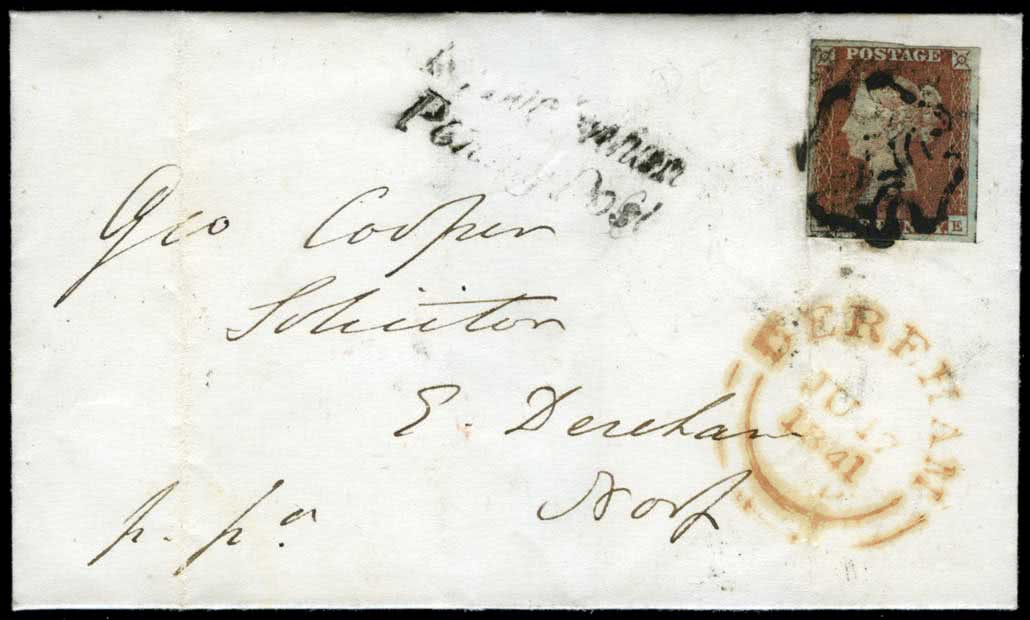 POSTAGE
E
Penny Post
Geo Cooper
Solicitor
E. Dereham
Norf
p. pd
DEREHAM
JU 17
1841